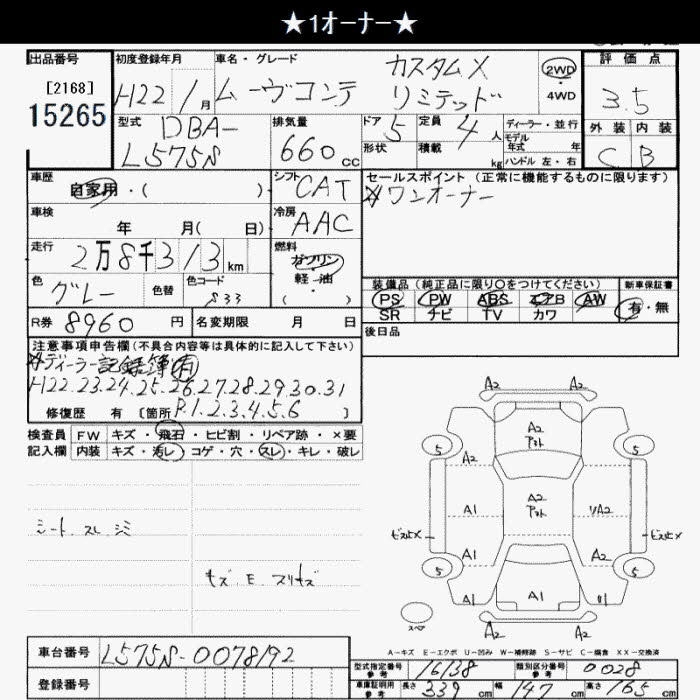 ★1オーナー★
出品番号
[2168]
15265
初度登録年月
H22 / 1月
車名・グレード
ムーヴコンテ
カスタムX
リミテッド
2WD
4WD
評価点
3.5
外装 内装
C B
型式
DBA-
L575S
排気量
660 cc
ドア 5
形状
定員 4 人
積載 kg
ディーラー・並行
モデル年式 年
ハンドル 左・右
車歴
自家用・( )
シフト CAT
セールスポイント (正常に機能するものに限ります)
ワンオーナー
車検
年 月( 日)
冷房 AAC
走行
2万8千313 km
燃料
ガソリン
軽・油
・
( )
色
グレー
色替
色コード
S33
装備品 (純正品に限り○をつけてください)
PS PW ABS エアB AW
SR ナビ TV カワ
新車保証書
有・無
R券 8960 円
名変期限 月 日
後日品
注意事項申告欄 (不具合内容等は具体的に記入して下さい)
ディーラー記録簿(有)
H22.23.24.25.26.27.28.29.30.31
修復歴 有 [箇所 P.1.2.3.4.5.6 ]
検査員 FW キズ・飛石・ヒビ割・リペア跡・×要
記入欄 内装 キズ・汚レ・コゲ・穴・スレ・キレ・破レ
シート スレ シミ
キズ E スリキズ
A2 A2
A2
5 5
A2
A1 A2 リA2
A1 A2
5 5
A1 A1
A2 A2
スペア
A-キズ E-エクボ U-凹み W-補修跡 S-サビ C-腐食 XX-交換済
車台番号 L575S-0078192
登録番号
型式指定番号 参考 16138
類別区分番号 参考 0028
車庫証明用 参考 長さ 339 cm 幅 147 cm 高さ 165 cm